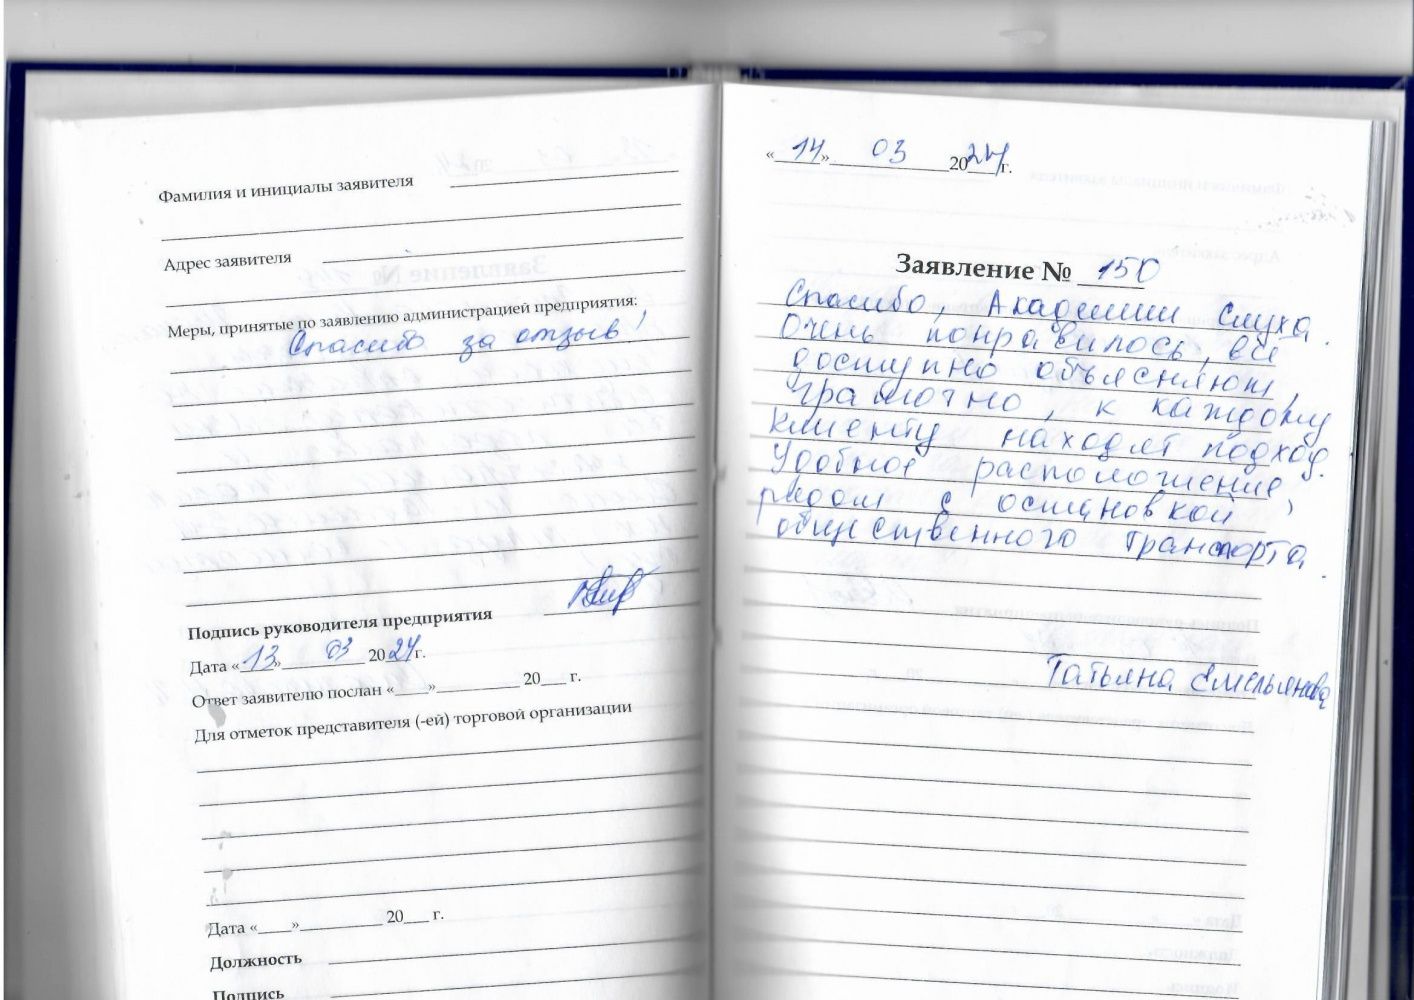 Фамилия и инициалы заявителя
Адрес заявителя
Меры, принятые по заявлению администрацией предприятия:
Спасибо за отзыв!
Подпись руководителя предприятия
Дата «13» 03 2024 г.
Ответ заявителю послан «____»__________ 20___ г.
Для отметок представителя (-ей) торговой организации
Дата «____»__________ 20___ г.
Должность
Подпись
«14» 03 2024 г.
Заявление № 150
Спасибо, Академии Слуха.
Очень понравилось, все
доступно объясняют,
грамотно, к каждому
клиенту находят подход.
Удобное расположение,
рядом с остановкой
общественного транспорта.
Татьяна Емельянова